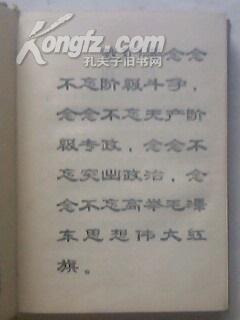 Kongfz.com
孔夫子旧书网
念念
不忘阶级斗争，
念念不忘无产阶
级专政，念念不
忘突出政治，念
念不忘高举毛澤
东思想伟大红
旗。